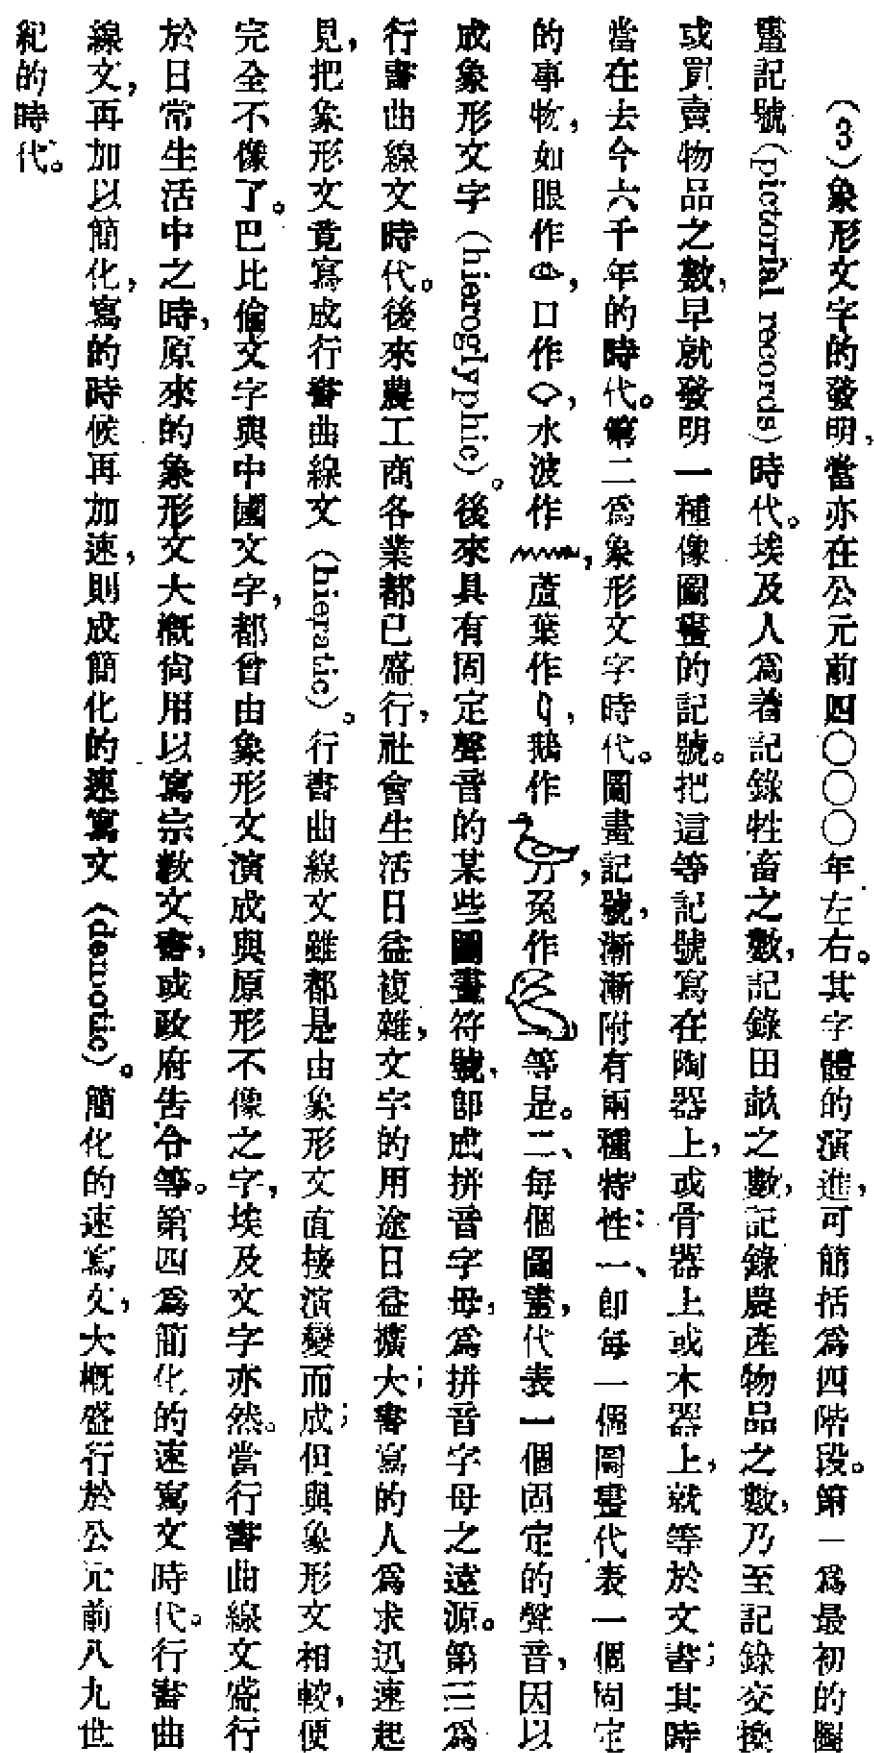 (3)象形文字的發明，當亦在公元前四〇〇〇年左右。其字體的演進，可簡括爲四階段。第一爲最初的圖
畫記號(pictorial records)時代。埃及人爲着記錄牲畜之數，記錄田畝之數，記錄農產物品之數，乃至記錄交換
或買賣物品之數，早就發明一種像圖畫的記號。把這等記號寫在陶器上，或骨器上或木器上，就等於文書；其時
當在去今六千年的時代。第二爲象形文字時代。圖畫記號，漸漸附有兩種特性：一、卽每一個圖畫代表一個固定
的事物，如眼作，口作，水波作，蘆葉作，鵝作，兔作等是。二、每個圖畫，代表一個固定的聲音，因以
成象形文字(hieroglyphic)。後來具有固定聲音的某些圖畫符號，卽成拼音字母，爲拼音字母之遠源。第三爲
行書曲線文時代。後來農工商各業都已盛行，社會生活日益複雜，文字的用途日益擴大；書寫的人爲求迅速起
見，把象形文竟寫成行書曲線文(hieratic)。行書曲線文雖都是由象形文直接演變而成；但與象形文相較，便
完全不像了。巴比倫文字與中國文字，都曾由象形文演成與原形不像之字，埃及文字亦然。當行書曲線文盛行
於日常生活中之時，原來的象形文大概尚用以寫宗教文書，或政府告令等。第四爲簡化的速寫文時代。行書曲
線文，再加以簡化，寫的時候再加速，則成簡化的速寫文(demotic)。簡化的速寫文，大概盛行於公元前八九世
紀的時代。